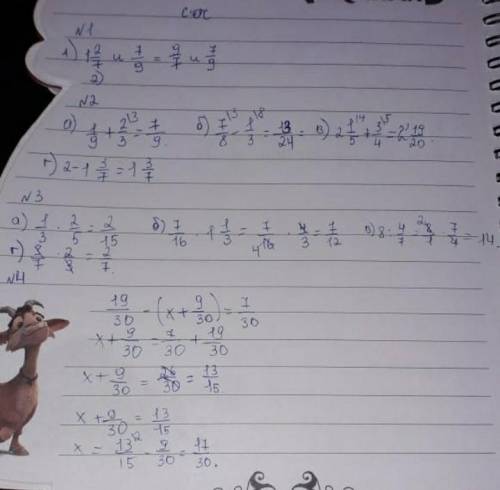 с/р
№1
1) 1 2/7 и 7/9 = 9/7 и 7/9
2)
№2
а) 1/9 + 2/3 = 7/9. б) 7/8 - 1/3 = 13/24 = в) 2 1/5 + 3/4 = 2 19/20.
г) 2-1 3/7 = 1 3/7
№3
а) 1/3 · 2/5 = 2/15 б) 7/16 · 1 1/3 = 7/16 · 4/3 = 7/12 в) 8 · 4/7 = 8/1 · 7/4 = 14.
г) 8/7 · 2/8 = 2/7.
№4
19/30 - (x + 9/30) = 7/30
x + 9/30 = 7/30 + 19/30
x + 9/30 = 26/30 = 13/15
x + 9/30 = 13/15
x = 13/15 - 9/30 = 17/30.